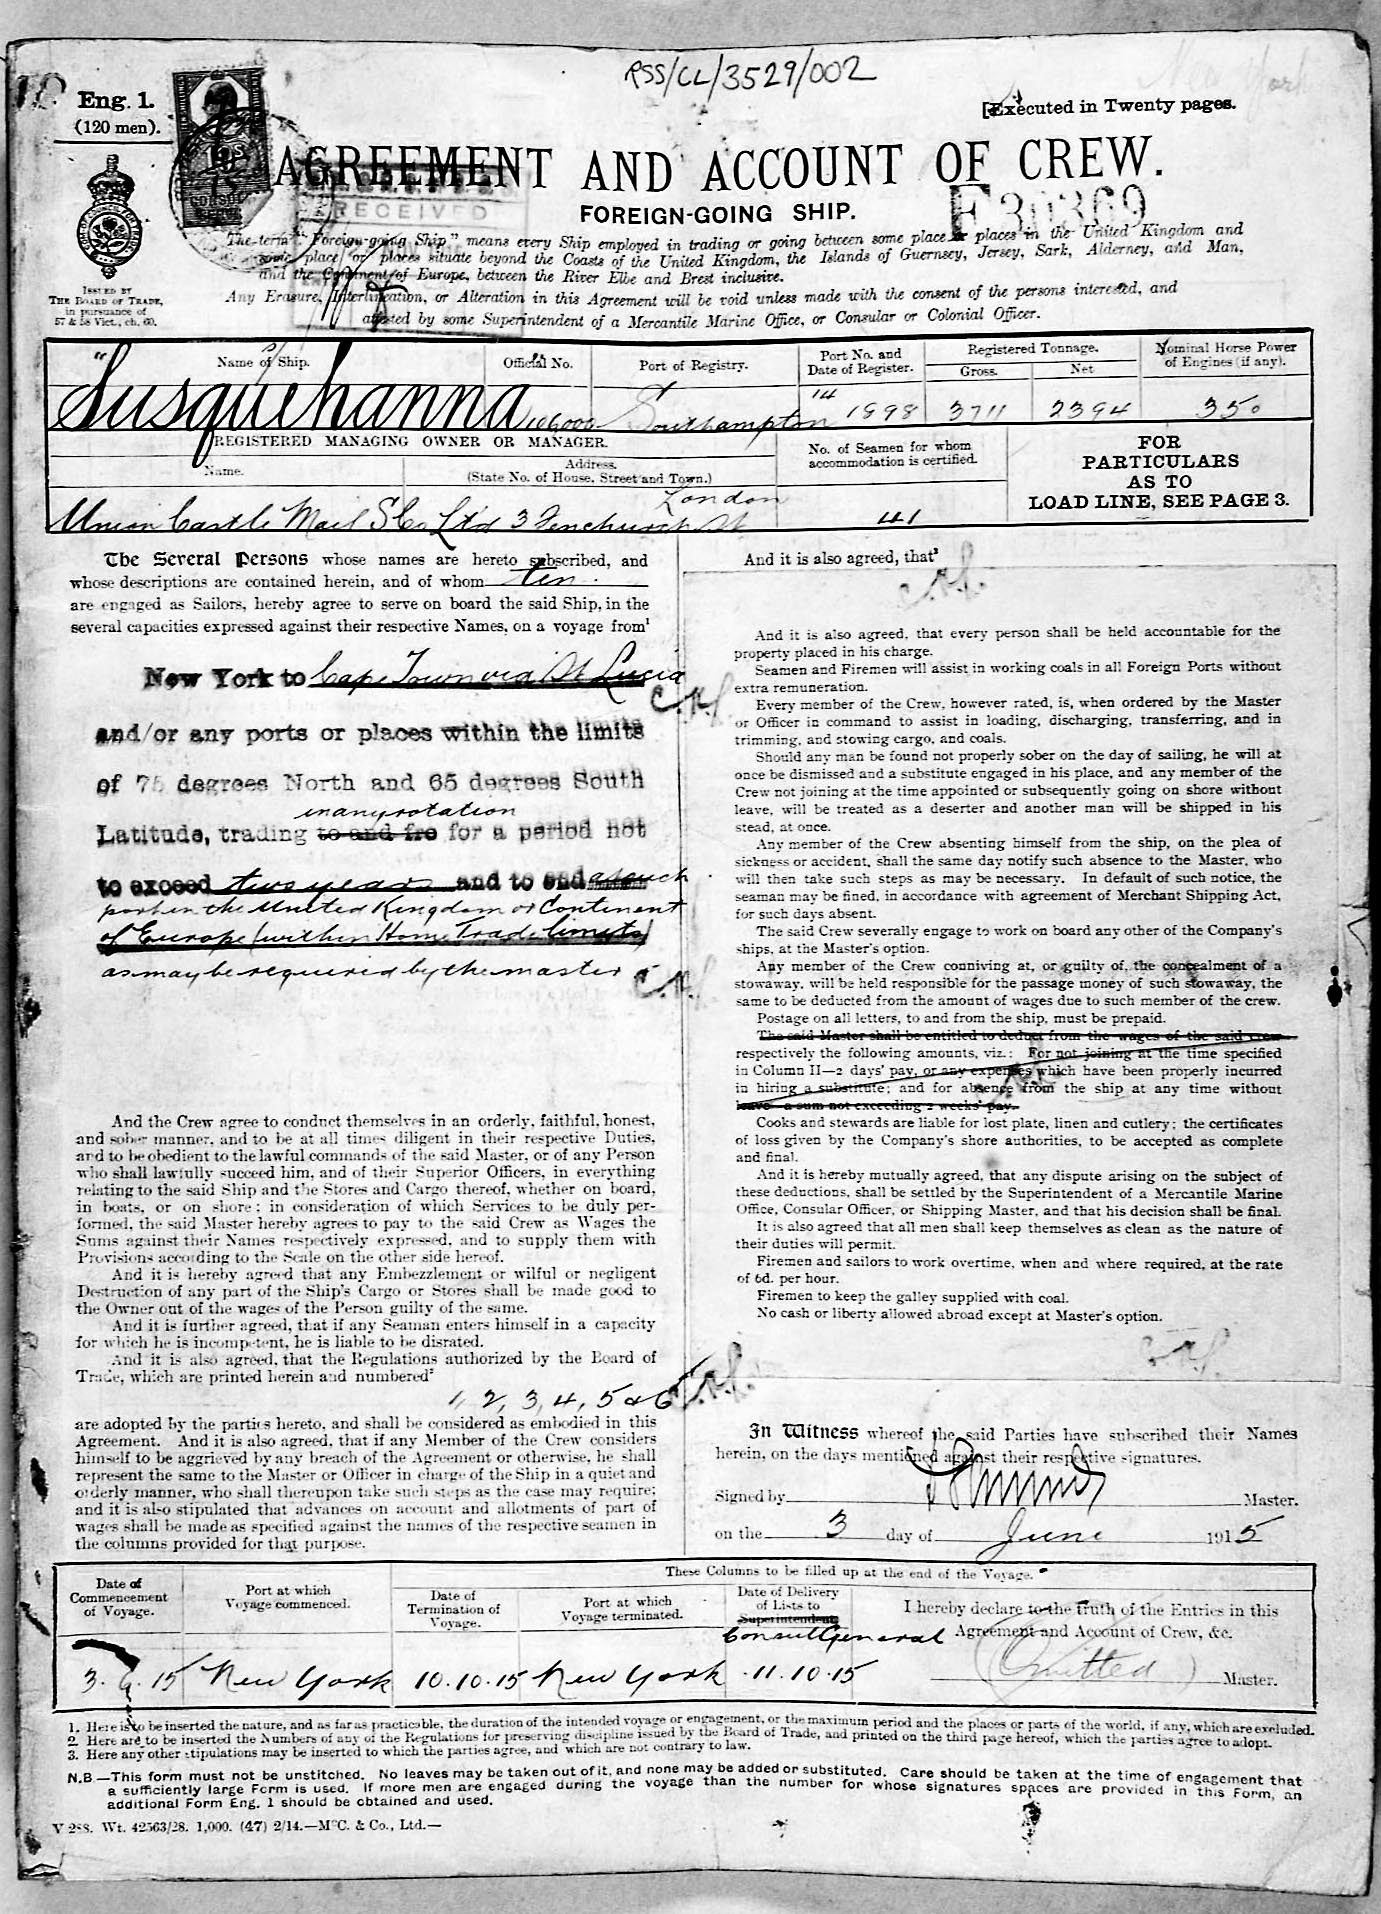 RSS/CL/3529/002
Eng. 1.
(120 men).
[Executed in Twenty pages.
AGREEMENT AND ACCOUNT OF CREW.
RECEIVED
FOREIGN-GOING SHIP.
F 30369
The term "Foreign-going Ship" means every Ship employed in trading or going between some place or places in the United Kingdom and
some place or places situate beyond the Coasts of the United Kingdom, the Islands of Guernsey, Jersey, Sark, Alderney, and Man,
and the Continent of Europe, between the River Elbe and Brest inclusive.
Any Erasure, Interlineation, or Alteration in this Agreement will be void unless made with the consent of the persons interested, and
attested by some Superintendent of a Mercantile Marine Office, or Consular or Colonial Officer.
ISSUED BY
THE BOARD OF TRADE,
in pursuance of
57 & 58 Vict., ch. 60.
Name of Ship. Official No. Port of Registry. Port No. and Date of Register. Registered Tonnage. Gross. Net Nominal Horse Power of Engines (if any).
"Susquehanna" 106000 Southampton 14 1898 3711 2394 350
REGISTERED MANAGING OWNER OR MANAGER.
Name. Address. (State No. of House, Street and Town.)
No. of Seamen for whom accommodation is certified.
FOR
PARTICULARS
AS TO
LOAD LINE, SEE PAGE 3.
Union Castle Mail S S Co Ltd 3 Fenchurch St London 41
The Several Persons whose names are hereto subscribed, and
whose descriptions are contained herein, and of whom ten
are engaged as Sailors, hereby agree to serve on board the said Ship, in the
several capacities expressed against their respective Names, on a voyage from¹
New York to Cape Town via St Lucia
and/or any ports or places within the limits
of 75 degrees North and 65 degrees South
in any rotation
Latitude, trading to and fro for a period not
to exceed two years and to end at such
port in the United Kingdom or Continent
of Europe (within Home Trade limits)
as may be required by the master
And the Crew agree to conduct themselves in an orderly, faithful, honest,
and sober manner, and to be at all times diligent in their respective Duties,
and to be obedient to the lawful commands of the said Master, or of any Person
who shall lawfully succeed him, and of their Superior Officers, in everything
relating to the said Ship and the Stores and Cargo thereof, whether on board,
in boats, or on shore; in consideration of which Services to be duly per-
formed, the said Master hereby agrees to pay to the said Crew as Wages the
Sums against their Names respectively expressed, and to supply them with
Provisions according to the Scale on the other side hereof.
And it is hereby agreed that any Embezzlement or wilful or negligent
Destruction of any part of the Ship's Cargo or Stores shall be made good to
the Owner out of the wages of the Person guilty of the same.
And it is further agreed, that if any Seaman enters himself in a capacity
for which he is incompetent, he is liable to be disrated.
And it is also agreed, that the Regulations authorized by the Board of
Trade, which are printed herein and numbered²
1, 2, 3, 4, 5 & 6
are adopted by the parties hereto, and shall be considered as embodied in this
Agreement. And it is also agreed, that if any Member of the Crew considers
himself to be aggrieved by any breach of the Agreement or otherwise, he shall
represent the same to the Master or Officer in charge of the Ship in a quiet and
orderly manner, who shall thereupon take such steps as the case may require;
and it is also stipulated that advances on account and allotments of part of
wages shall be made as specified against the names of the respective seamen in
the columns provided for that purpose.
And it is also agreed, that³
And it is also agreed, that every person shall be held accountable for the
property placed in his charge.
Seamen and Firemen will assist in working coals in all Foreign Ports without
extra remuneration.
Every member of the Crew, however rated, is, when ordered by the Master
or Officer in command to assist in loading, discharging, transferring, and in
trimming, and stowing cargo, and coals.
Should any man be found not properly sober on the day of sailing, he will at
once be dismissed and a substitute engaged in his place, and any member of the
Crew not joining at the time appointed or subsequently going on shore without
leave, will be treated as a deserter and another man will be shipped in his
stead, at once.
Any member of the Crew absenting himself from the ship, on the plea of
sickness or accident, shall the same day notify such absence to the Master, who
will then take such steps as may be necessary. In default of such notice, the
seaman may be fined, in accordance with agreement of Merchant Shipping Act,
for such days absent.
The said Crew severally engage to work on board any other of the Company's
ships, at the Master's option.
Any member of the Crew conniving at, or guilty of, the concealment of a
stowaway, will be held responsible for the passage money of such stowaway, the
same to be deducted from the amount of wages due to such member of the crew.
Postage on all letters, to and from the ship, must be prepaid.
The said Master shall be entitled to deduct from the wages of the said crew
respectively the following amounts, viz.: For not joining at the time specified
in Column II—2 days' pay, or any expenses which have been properly incurred
in hiring a substitute; and for absence from the ship at any time without
leave a sum not exceeding 2 weeks' pay.
Cooks and stewards are liable for lost plate, linen and cutlery; the certificates
of loss given by the Company's shore authorities, to be accepted as complete
and final.
And it is hereby mutually agreed, that any dispute arising on the subject of
these deductions, shall be settled by the Superintendent of a Mercantile Marine
Office, Consular Officer, or Shipping Master, and that his decision shall be final.
It is also agreed that all men shall keep themselves as clean as the nature of
their duties will permit.
Firemen and sailors to work overtime, when and where required, at the rate
of 6d. per hour.
Firemen to keep the galley supplied with coal.
No cash or liberty allowed abroad except at Master's option.
In Witness whereof the said Parties have subscribed their Names
herein, on the days mentioned against their respective signatures.
Signed by Master.
on the 3 day of June 1915
These Columns to be filled up at the end of the Voyage.
Date of Commencement of Voyage. Port at which Voyage commenced. Date of Termination of Voyage. Port at which Voyage terminated. Date of Delivery of Lists to Superintendent Consul General
I hereby declare to the Truth of the Entries in this
Agreement and Account of Crew, &c.
3.6.15 New York 10.10.15 New York 11.10.15 (Omitted) Master.
1. Here is to be inserted the nature, and as far as practicable, the duration of the intended voyage or engagement, or the maximum period and the places or parts of the world, if any, which are excluded.
2. Here are to be inserted the Numbers of any of the Regulations for preserving discipline issued by the Board of Trade, and printed on the third page hereof, which the parties agree to adopt.
3. Here any other stipulations may be inserted to which the parties agree, and which are not contrary to law.
N.B—This form must not be unstitched. No leaves may be taken out of it, and none may be added or substituted. Care should be taken at the time of engagement that
a sufficiently large Form is used. If more men are engaged during the voyage than the number for whose signatures spaces are provided in this Form, an
additional Form Eng. 1 should be obtained and used.
V 288. Wt. 42563/28. 1,000. (47) 2/14.—McC. & Co., Ltd.—